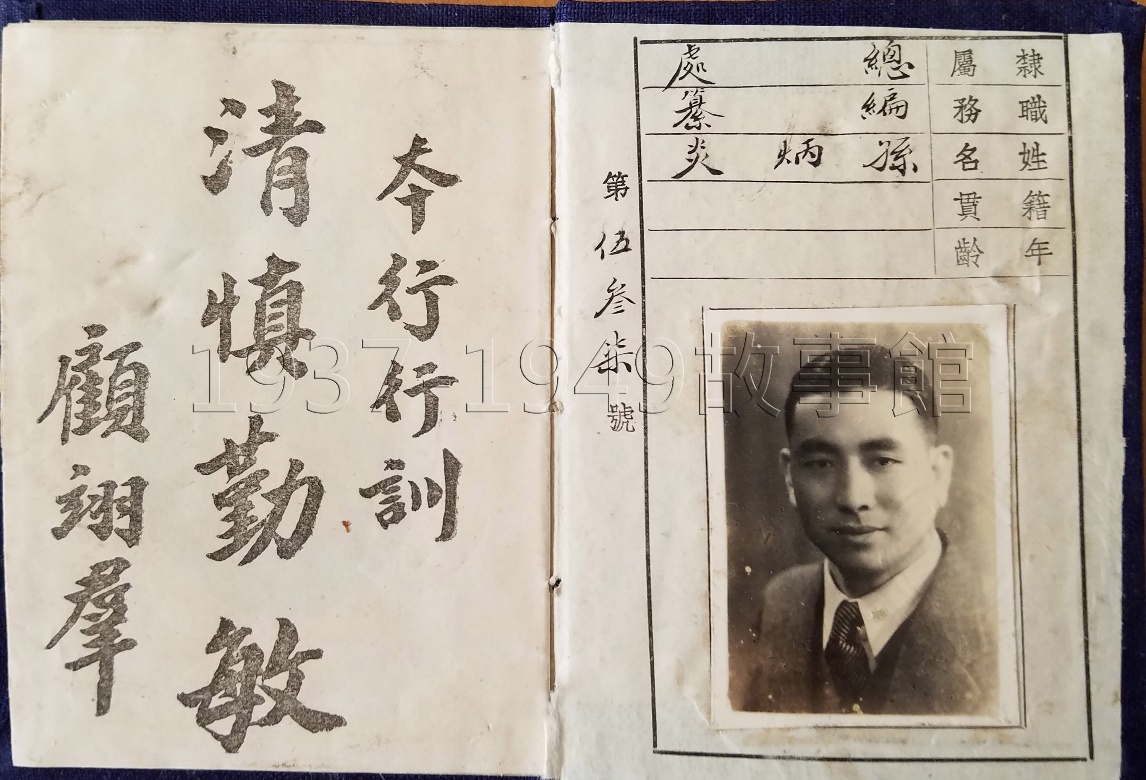 隸屬 總處
職務 編纂
姓名 孫炳炎
籍貫
年齡
第伍叁柒號
夲行行訓
清慎勤敏
顧翊羣
1937-1949故事館